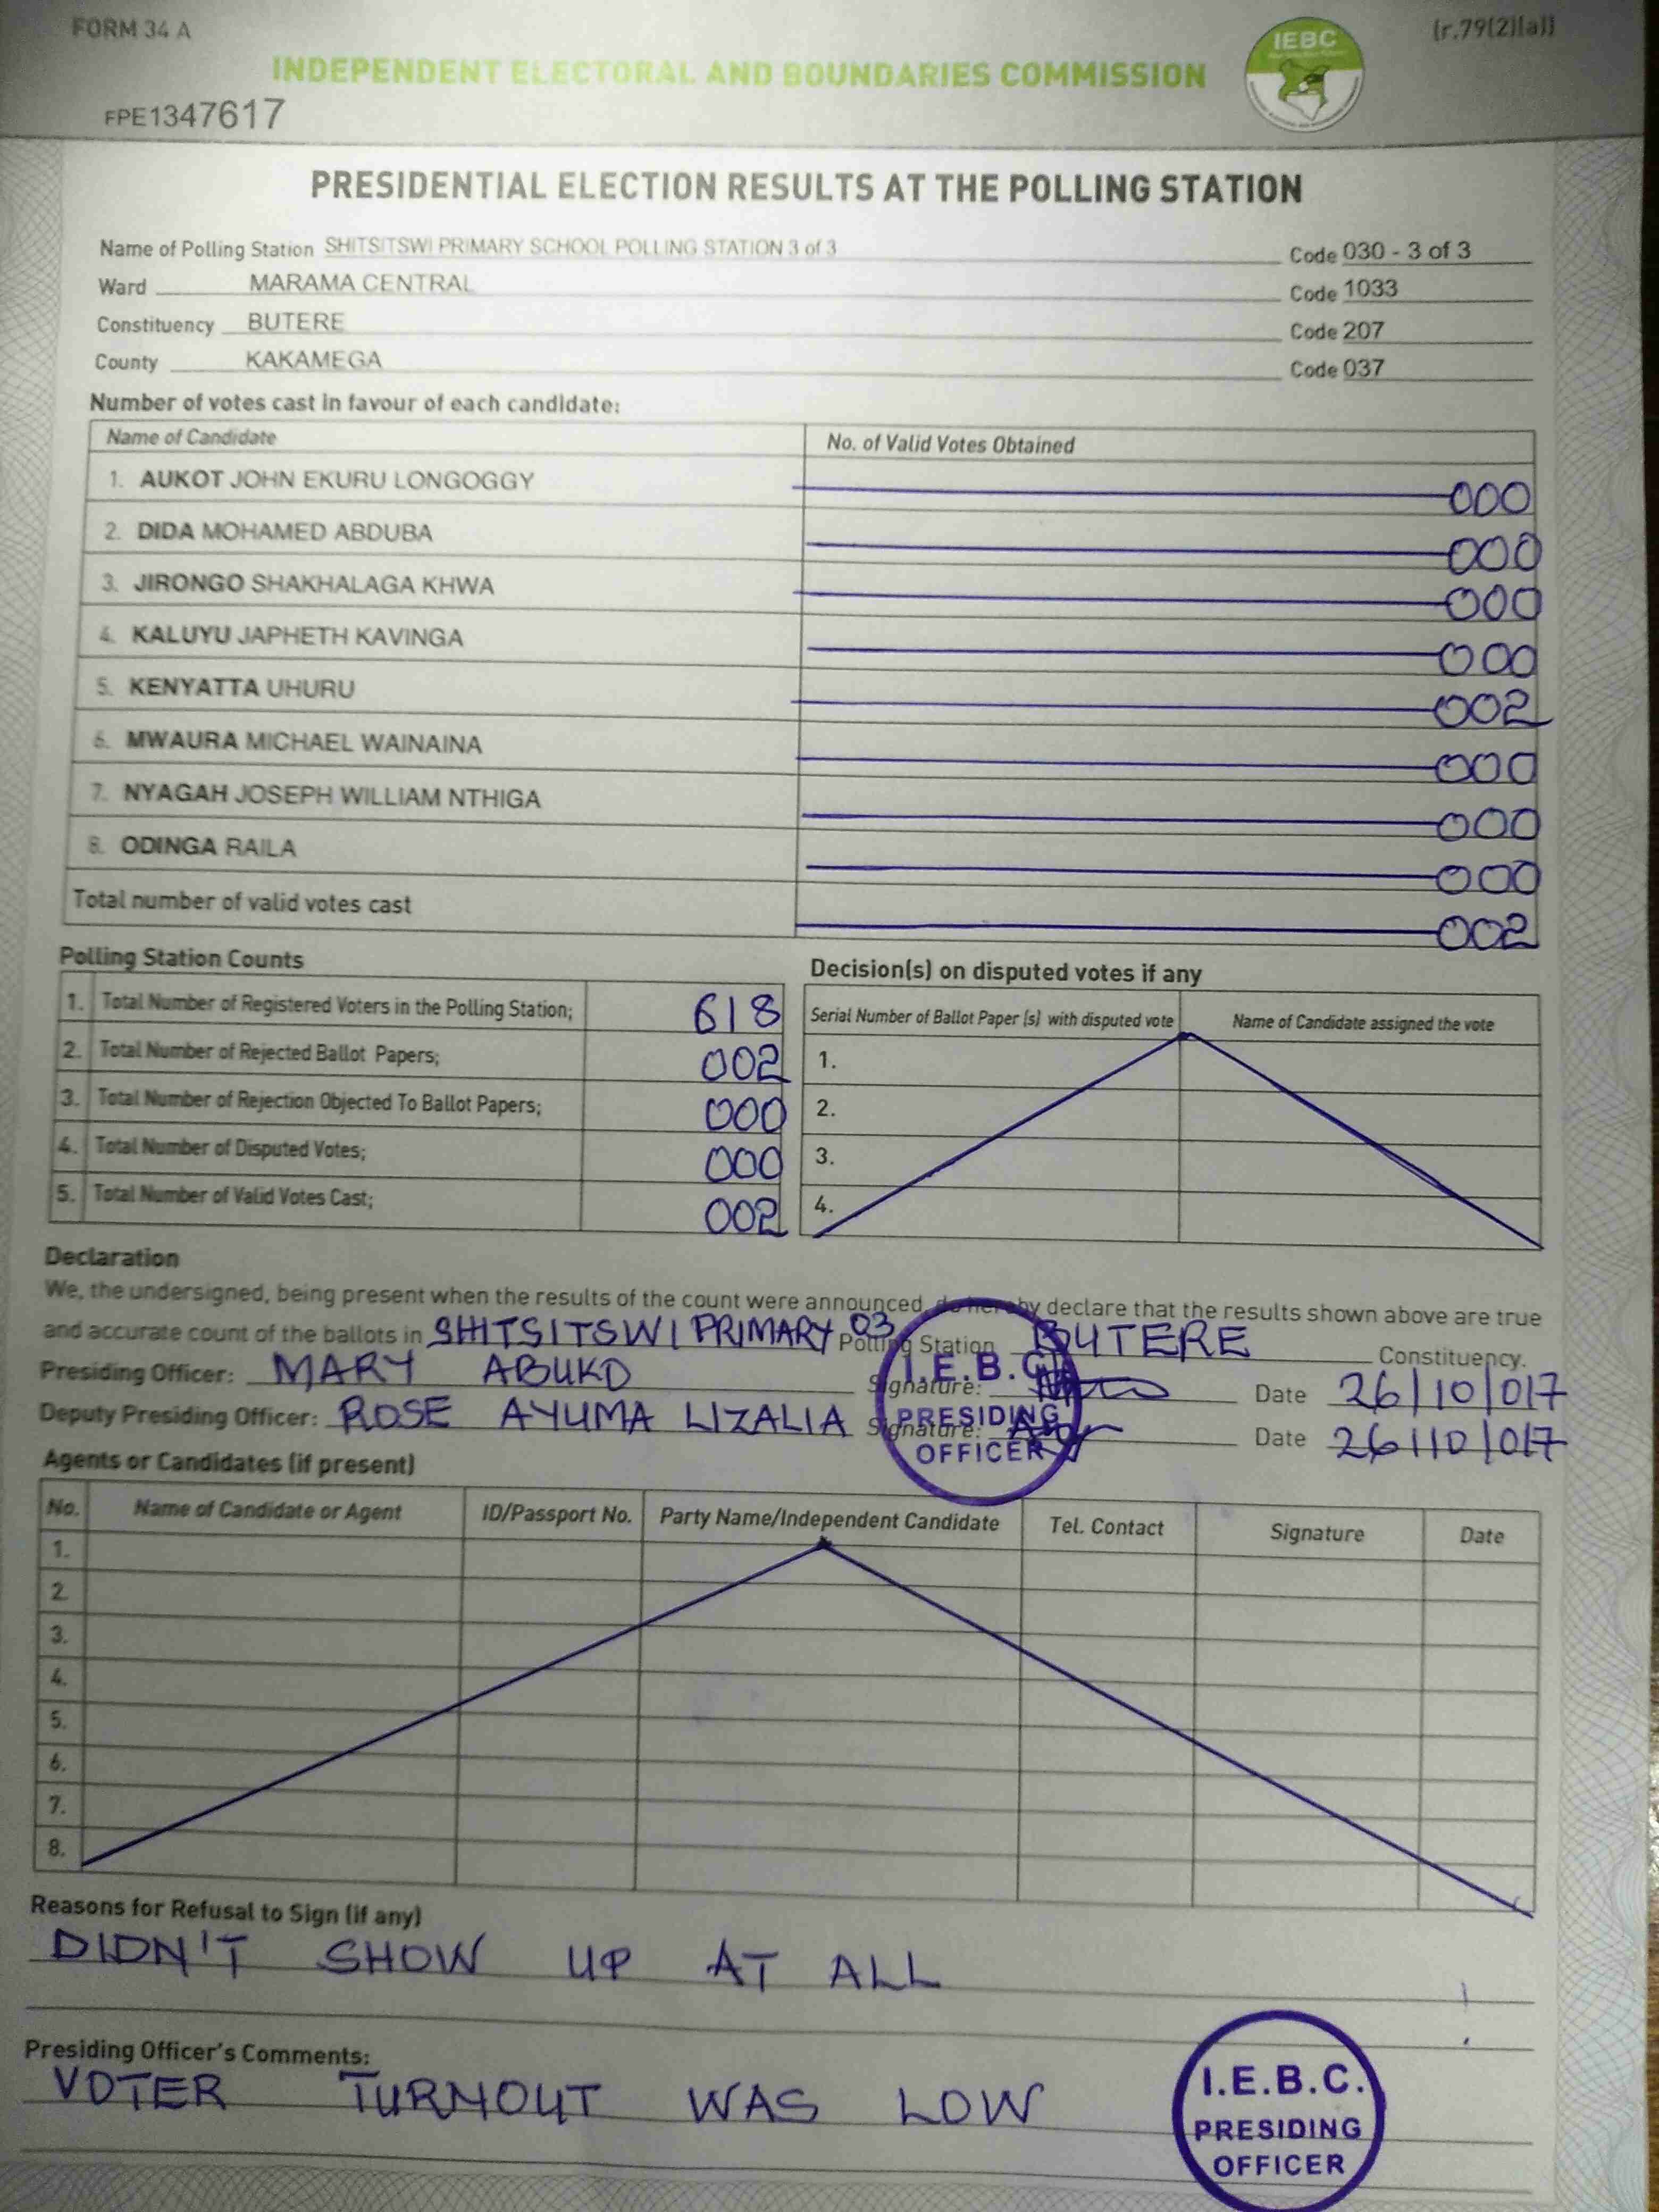 FORM 34 A
(r.79(2)(a))
INDEPENDENT ELECTORAL AND BOUNDARIES COMMISSION
IEBC
FPE1347617
PRESIDENTIAL ELECTION RESULTS AT THE POLLING STATION
Name of Polling Station SHITSITSWI PRIMARY SCHOOL POLLING STATION 3 of 3 Code 030 - 3 of 3
Ward MARAMA CENTRAL Code 1033
Constituency BUTERE Code 207
County KAKAMEGA Code 037
Number of votes cast in favour of each candidate:
Name of Candidate No. of Valid Votes Obtained
1. AUKOT JOHN EKURU LONGOGGY 000
2. DIDA MOHAMED ABDUBA 000
3. JIRONGO SHAKHALAGA KHWA 000
4. KALUYU JAPHETH KAVINGA 000
5. KENYATTA UHURU 002
6. MWAURA MICHAEL WAINAINA 000
7. NYAGAH JOSEPH WILLIAM NTHIGA 000
8. ODINGA RAILA 000
Total number of valid votes cast 002
Polling Station Counts
1. Total Number of Registered Voters in the Polling Station; 618
2. Total Number of Rejected Ballot Papers; 002
3. Total Number of Rejection Objected To Ballot Papers; 000
4. Total Number of Disputed Votes; 000
5. Total Number of Valid Votes Cast; 002
Decision(s) on disputed votes if any
Serial Number of Ballot Paper (s) with disputed vote Name of Candidate assigned the vote
1.
2.
3.
4.
Declaration
We, the undersigned, being present when the results of the count were announced, do hereby declare that the results shown above are true
and accurate count of the ballots in SHITSITSWI PRIMARY 03 Polling Station BUTERE Constituency.
Presiding Officer: MARY ABUKO Signature: Date 26/10/017
Deputy Presiding Officer: ROSE AYUMA LIZALIA Signature: Date 26/10/017
I.E.B.C.
PRESIDING
OFFICER
Agents or Candidates (if present)
No. Name of Candidate or Agent ID/Passport No. Party Name/Independent Candidate Tel. Contact Signature Date
1.
2.
3.
4.
5.
6.
7.
8.
Reasons for Refusal to Sign (if any)
DIDN'T SHOW UP AT ALL
Presiding Officer's Comments:
VOTER TURNOUT WAS LOW
I.E.B.C.
PRESIDING
OFFICER